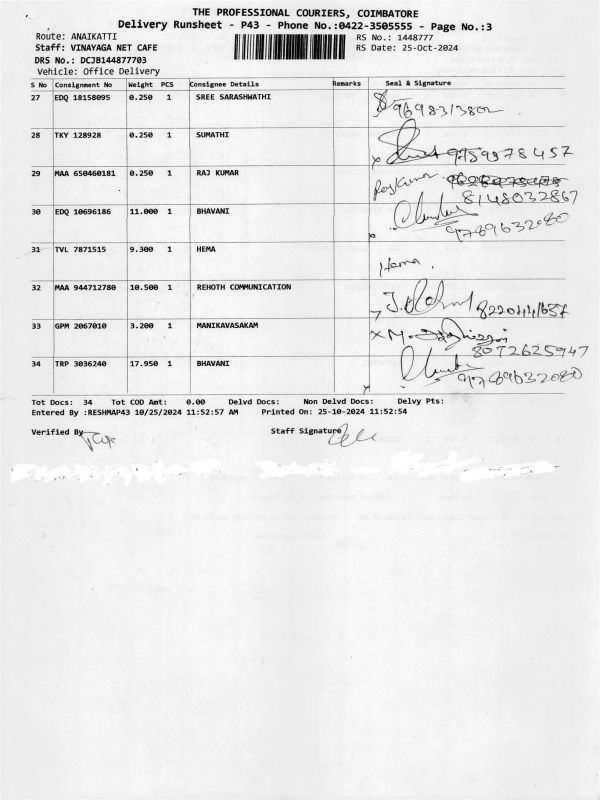 THE PROFESSIONAL COURIERS, COIMBATORE
Delivery Runsheet - P43 - Phone No.:0422-3505555 - Page No.:3
Route: ANAIKATTI RS No.: 1448777
Staff: VINAYAGA NET CAFE RS Date: 25-Oct-2024
DRS No.: DCJB144877703
Vehicle: Office Delivery
S No Consignment No Weight PCS Consignee Details Remarks Seal & Signature
27 EDQ 18158095 0.250 1 SREE SARASHWATHI 9698313802
28 TKY 128928 0.250 1 SUMATHI 9959978457
29 MAA 650460181 0.250 1 RAJ KUMAR RajKumar 8148032867
30 EDQ 10696186 11.000 1 BHAVANI 9789632080
31 TVL 7871515 9.300 1 HEMA Hema.
32 MAA 944712780 10.500 1 REHOTH COMMUNICATION
33 GPM 2067010 3.200 1 MANIKAVASAKAM 8072625947
34 TRP 3036240 17.950 1 BHAVANI 9789632080
Tot Docs: 34 Tot COD Amt: 0.00 Delvd Docs: Non Delvd Docs: Delvy Pts:
Entered By :RESHMAP43 10/25/2024 11:52:57 AM Printed On: 25-10-2024 11:52:54
Verified By Staff Signature